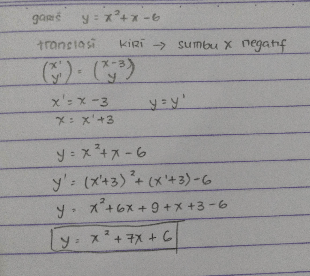 garis y = x² + x - 6
translasi kiri → sumbu x negatif
(x' y') = (x-3 y)
x' = x - 3 y = y'
x = x' + 3
y = x² + x - 6
y' = (x'+3)² + (x'+3) - 6
y = x² + 6x + 9 + x + 3 - 6
y = x² + 7x + 6